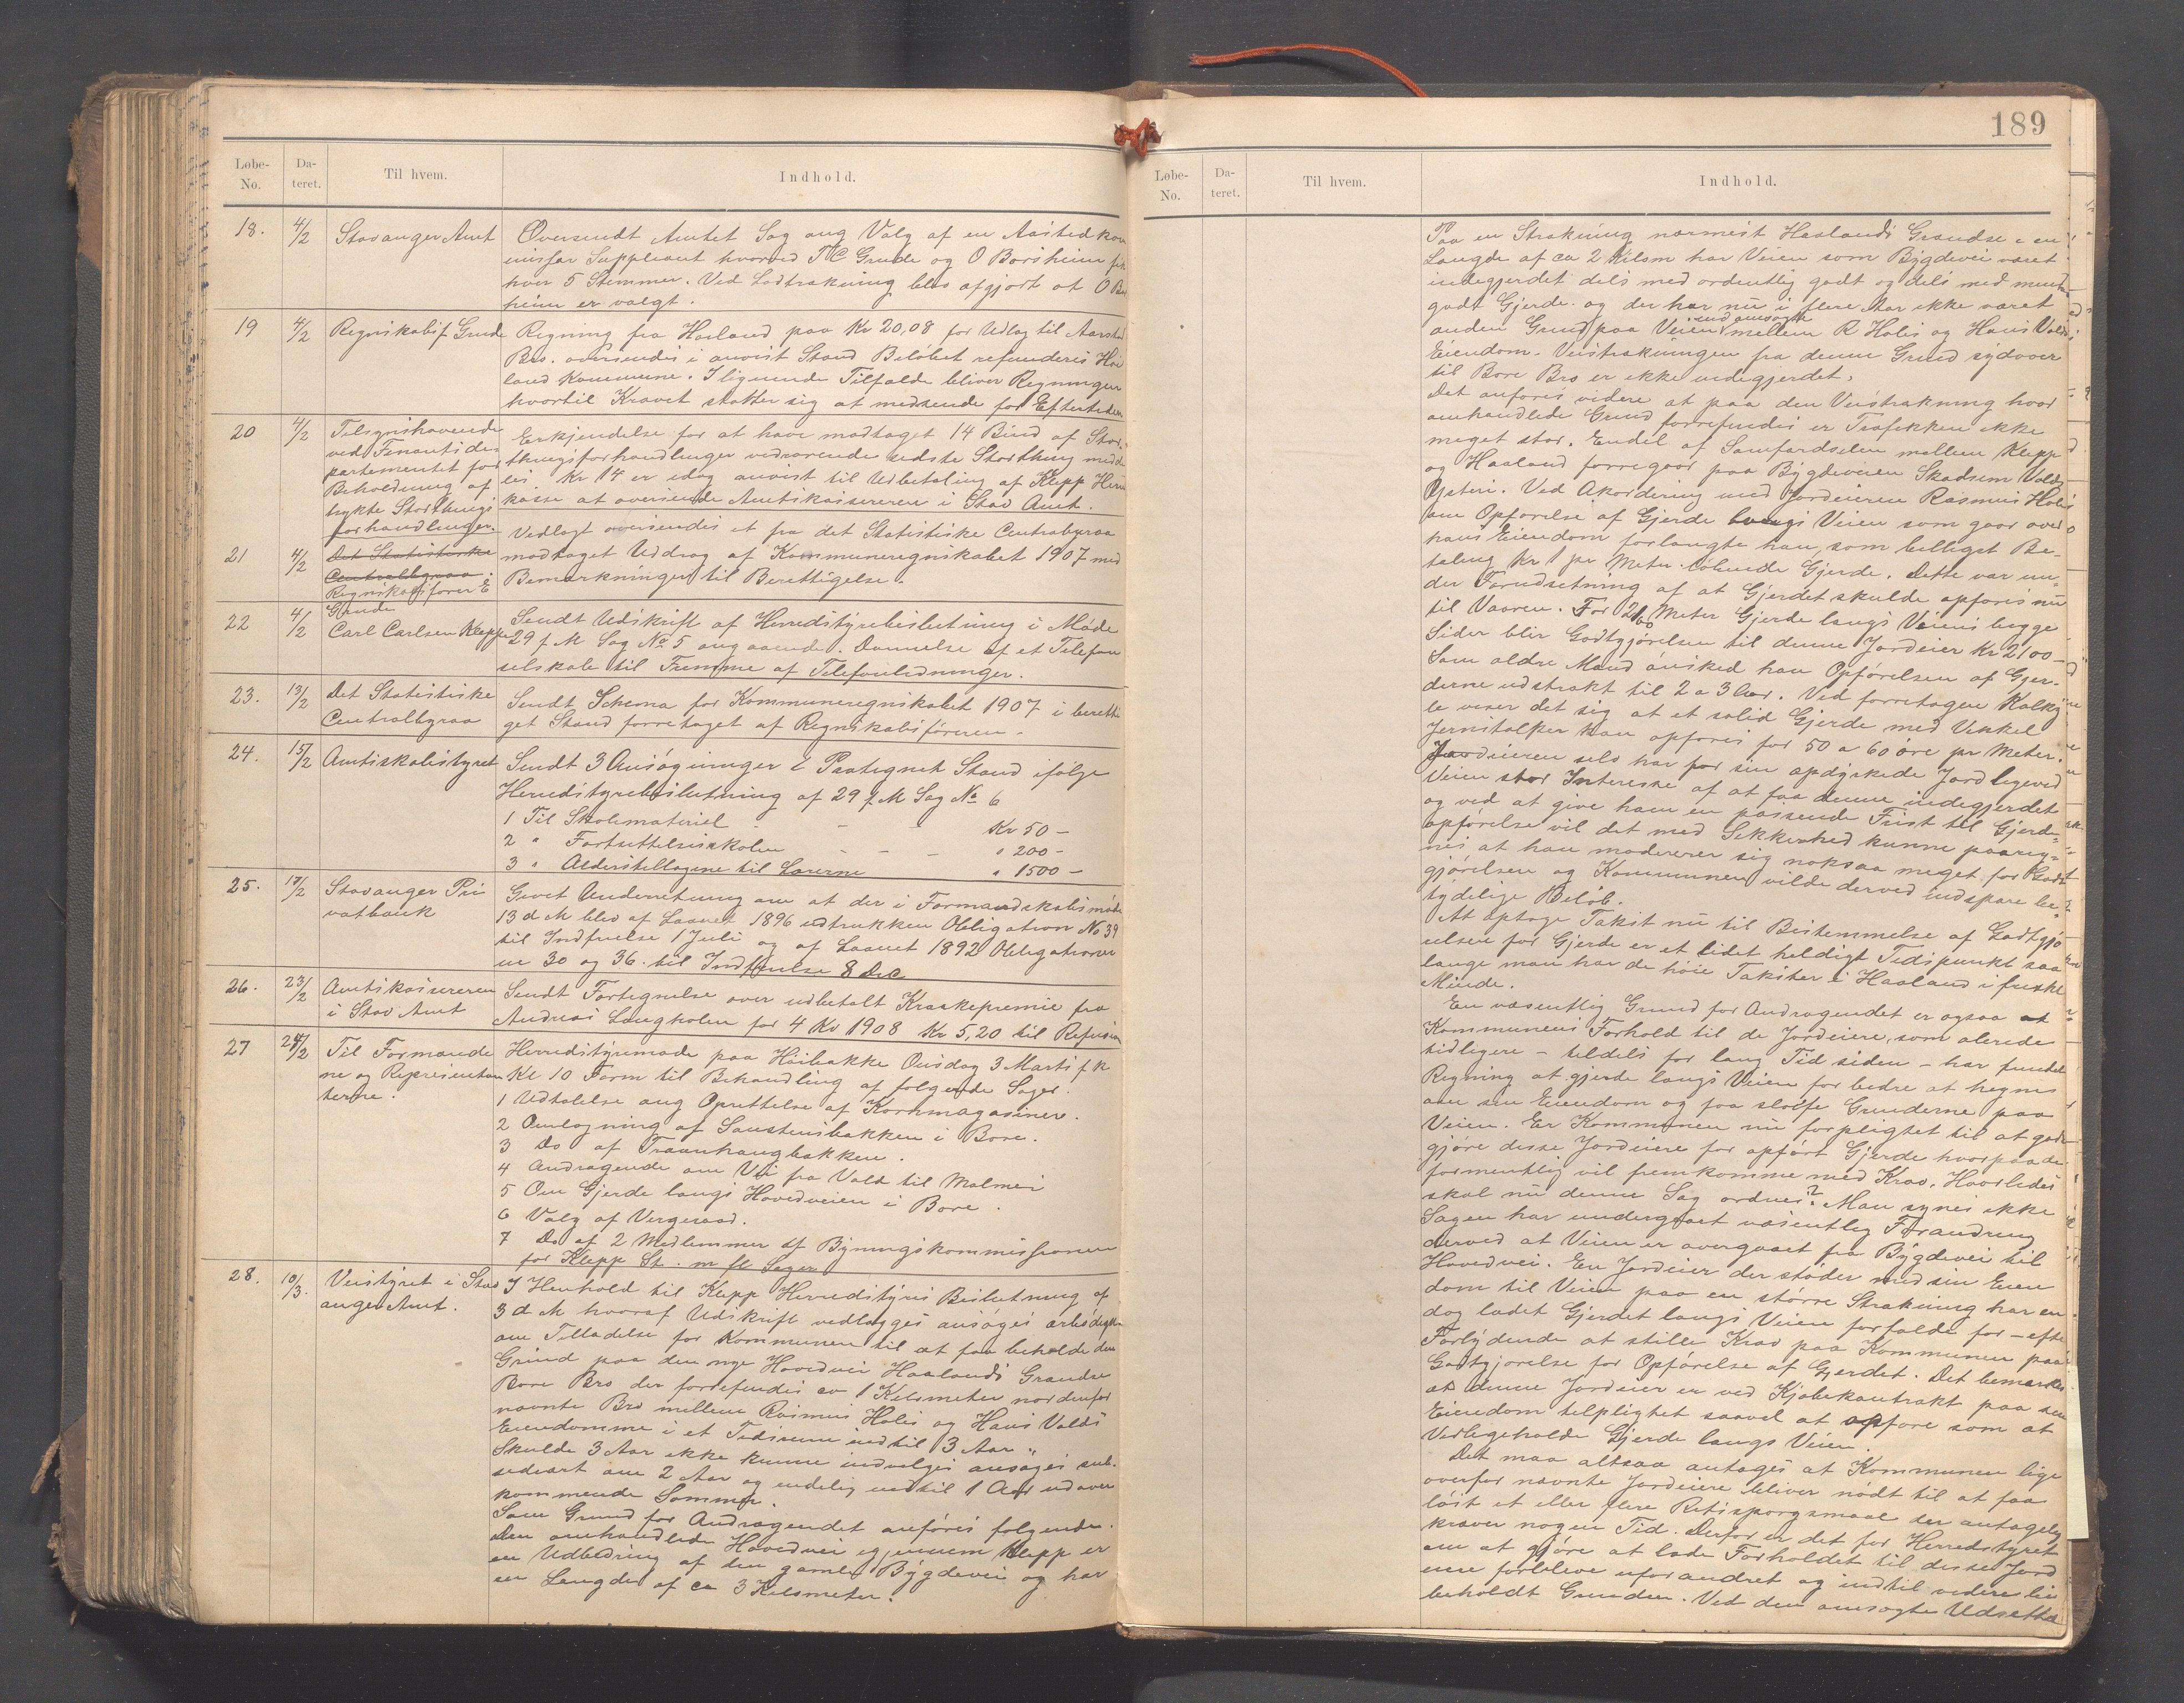 189
Løbe-No. Da-teret. Til hvem. Indhold.
18. 4/2 Stavanger Amt Oversendt Amtet Sag ang Valg af en Aastedkom
missær Suppleant hvorved T C Grude og O Borsheim fik
hver 5 Stemmer. Ved Lodtrækning blev afgjort at O Bor
heim er valgt.
19 4/2 Regnskabsf. Grude Regning fra Haaland paa Kr 20,08 for Udlæg til Aarstad
Bro. oversendes i anvist Stand Beløbet refunderes Haa
land Kommune. I lignende Tilfælde bliver Regninger
hvortil Kravet støtter sig at medsende for Eftertiden
20 4/2 Tilsynshavende
ved Finantsde-
partementet for
Beholdning af
trykte Storthings
forhandlinger.
Erkjendelse for at have modtaget 14 Bind af Stor-
thingsforhandlinger vedrørende sidste Storthing medde
les. Kr 14 er idag anvist til Udbetaling af Klepp Herreds
kasse at oversende Amtskassereren i Stav Amt.
21 4/2 Det Statistiske
Centralbyraa.
Regnskabsfører E
Grude
Vedlagt oversendes et fra det Statistiske Centralbyraa
modtaget Uddrag af Kommuneregnskabet 1907 med
Bemærkninger til Berettigelse.
22 4/2 Carl Carlsen Kleppe Sendt Udskrift af Herredstyrebeslutning i Møde
29 f M Sag No 5 angaaende. Dannelse af et Telefon
selskab til Fremme af Telefonledninger.
23. 13/2 Det Statistiske
Centralbyraa
Sendt Schema for Kommuneregnskabet 1907 i beretti
get Stand foretaget af Regnskabsføreren.
24. 15/2 Amtsskolestyret Sendt 3 Ansøgninger i Paategnet Stand ifølge
Herredstyrebeslutning af 29 f M Sag No 6
1 Til Skolemateriel - - - Kr 50 -
2 " Fortsættelsesskolen - - - " 200 -
3 " Alderstillægene til Lærerne " 1500 -
25. 17/2 Stavanger Pri
vatbank
Givet Underretning om at der i Formandskabsmøde
13 d M blev af Laanet 1896 udtrukken Obligation No 39
til Indfrielse 1 Juli og af Laanet 1892 Obligationer
ne 30 og 36. til Indfrielse 8 Dec
26. 23/2 Amtskassereren
i Stav Amt
Sendt Fortegnelse over udbetalt Kraakepremie fra
Andreas Langholen for 4 Kv 1908 Kr 5,20 til Refusion
27 24/2 Til Formænde
ne og Represintan
terne.
Herredstyremøde paa Høibakke Onsdag 3 Marts f k
Kl 10 Form til Behandling af følgende Sager.
1 Udtalelse ang Oprettelse af Kornmagasiner.
2 Omlægning af Saustensbakken i Bore.
3 Do af Traanhaugbakken.
4 Andragende om Vei fra Vold til Malmei
5 Om Gjerde langs Hovedveien i Bore.
6 Valg af Vergeraad.
7 Do af 2 Medlemmer af Bygningskommissionen
for Klepp St. m fl Sager
28. 10/3. Veistyret i Stav
anger Amt.
I Henhold til Klepp Herredstyres Beslutning af
3 d M hvoraf Udskrift vedlægges ansøges ærbødigst
om Tilladelse for Kommunen til at faa beholde den
Grind paa den nye Hovedvei Haalands Grændse
Bore Bro der forrefindes ca 1 Kilometer nordenfor
nævnte Bro mellem Rasmus Holes og Hans Volds
Eiendomme i et Tidsrum indtil 3 Aar."
Skulde 3 Aar ikke kunne indvilges ansøges sub-
sediært om 2 Aar og endelig indtil 1 Aar udover
kommende Sommer.
Som Grund for Andragendet anføres følgende.
Den omhandlede Hovedvei igjennem Klepp er
en Udbedring af den gamle Bygdevei og har
en Længde af ca 3 Kilometer.
Løbe-No. Da-teret. Til hvem. Indhold.
Paa en Strækning nærmest Haalands Grændse i en
Længde af ca 2 Kilom har Veien som Bygdevei været
indegjerdet dels med ordentlig godt og dels med mindre
godt Gjerde. og der har nu i flere Aar ikke været
anden Grind paa Veien end ansøgte mellem R Holes og Hans Volds
Eiendom. Veistrækningen fra denne Grind sydover
til Bore Bro er ikke indegjerdet.
Det anføres videre at paa den Veistrækning hvor
omhandlede Grind forrefindes er Trafikken ikke
meget stor. Endel af Samfærdselen mellem Klepp
og Haaland forregaar paa Bygdeveien Skadsem Vold
Ysteri. Ved Akordering med Jordeieren Rasmus Holes
om Opførelse af Gjerde langs Veien som gaar over
hans Eiendom forlangte han, som billigst Be-
taling Kr 1 pr Meter. løbende Gjerde. Dette var un-
der Forudsetning af at Gjerdet skulde opføres nu
til Vaaren. For 2100 Meter Gjerde langs Veiens begge
Sider blir Godtgjørelsen til denne Jordeier Kr 2100-
Som ældre Mand ønsked han Opførelsen af Gjer-
derne udstrakt til 2 a 3 Aar. Ved forretagen Kalky
le viser det sig at et solid Gjerde med Vinkel
Jernstolper kan opføres for 50 a 60 øre pr Meter.
Jordeieren selv har for sin opdyrkede Jord ligeved
Veien stor Interesse af at faa denne indegjerdet
og ved at give ham en passende Frist til Gjerde-
opførelse vil det med Sikkerhed kunne paareg-
nes at han modererer sig noksaa meget for Godt
gjørelsen og Kommunen vilde derved indspare be-
tydelige Beløb.
At optage Takst nu til Bestemmelse af Godtgjø
relsen for Gjerde er et lidet heldigt Tidspunkt saa
længe man har de høie Takster i Haaland i friske
Minde.
En væsentlig Grund for Andragendet er ogsaa at
Kommunens Forhold til de Jordeiere, som alerede
tidligere - tildels for lang Tid siden - har fundet
Regning at gjerde langs Veien for bedre at hegne
om sin Eiendom og faa sløife Grinderne paa
Veien. Er Kommunen nu forpligtet til at godt-
gjøre disse Jordeiere for opført Gjerde hvorpaa de
formentlig vil fremkomme med Krav. Hvorledes
skal nu denne Sag ordnes? Man synes ikke
Sagen har undergaaet væsentlig Forandring
derved at Veien er overgaaet fra Bygdevei til
Hovedvei. En Jordeier der støder med sin Eien
dom til Veien paa en større Strækning har en
dog ladet Gjerdet langs Veien forfalde for - efter
Forlydende at stille Krav paa Kommunen paa
Godtgjørelse for Opførelse af Gjerdet. Det bemærkes
at denne Jordeier er ved Kjøbekontrakt paa sin
Eiendom tilpligtet saavel at opføre som at
Vedligeholde Gjerde langs Veien.
Det maa altsaa antages at Kommunen lige
overfor nævnte Jordeiere bliver nødt til at faa
løst et eller flere Retsspørgsmaal der antagelig
kræver nogen Tid. Derfor er det for Herredstyret
om at gjøre at lade Forholdet til disse Jord
eiere forblive uforandret og indtil videre bli
beholdt Grinden. Ved den ansøgte Udsettelse